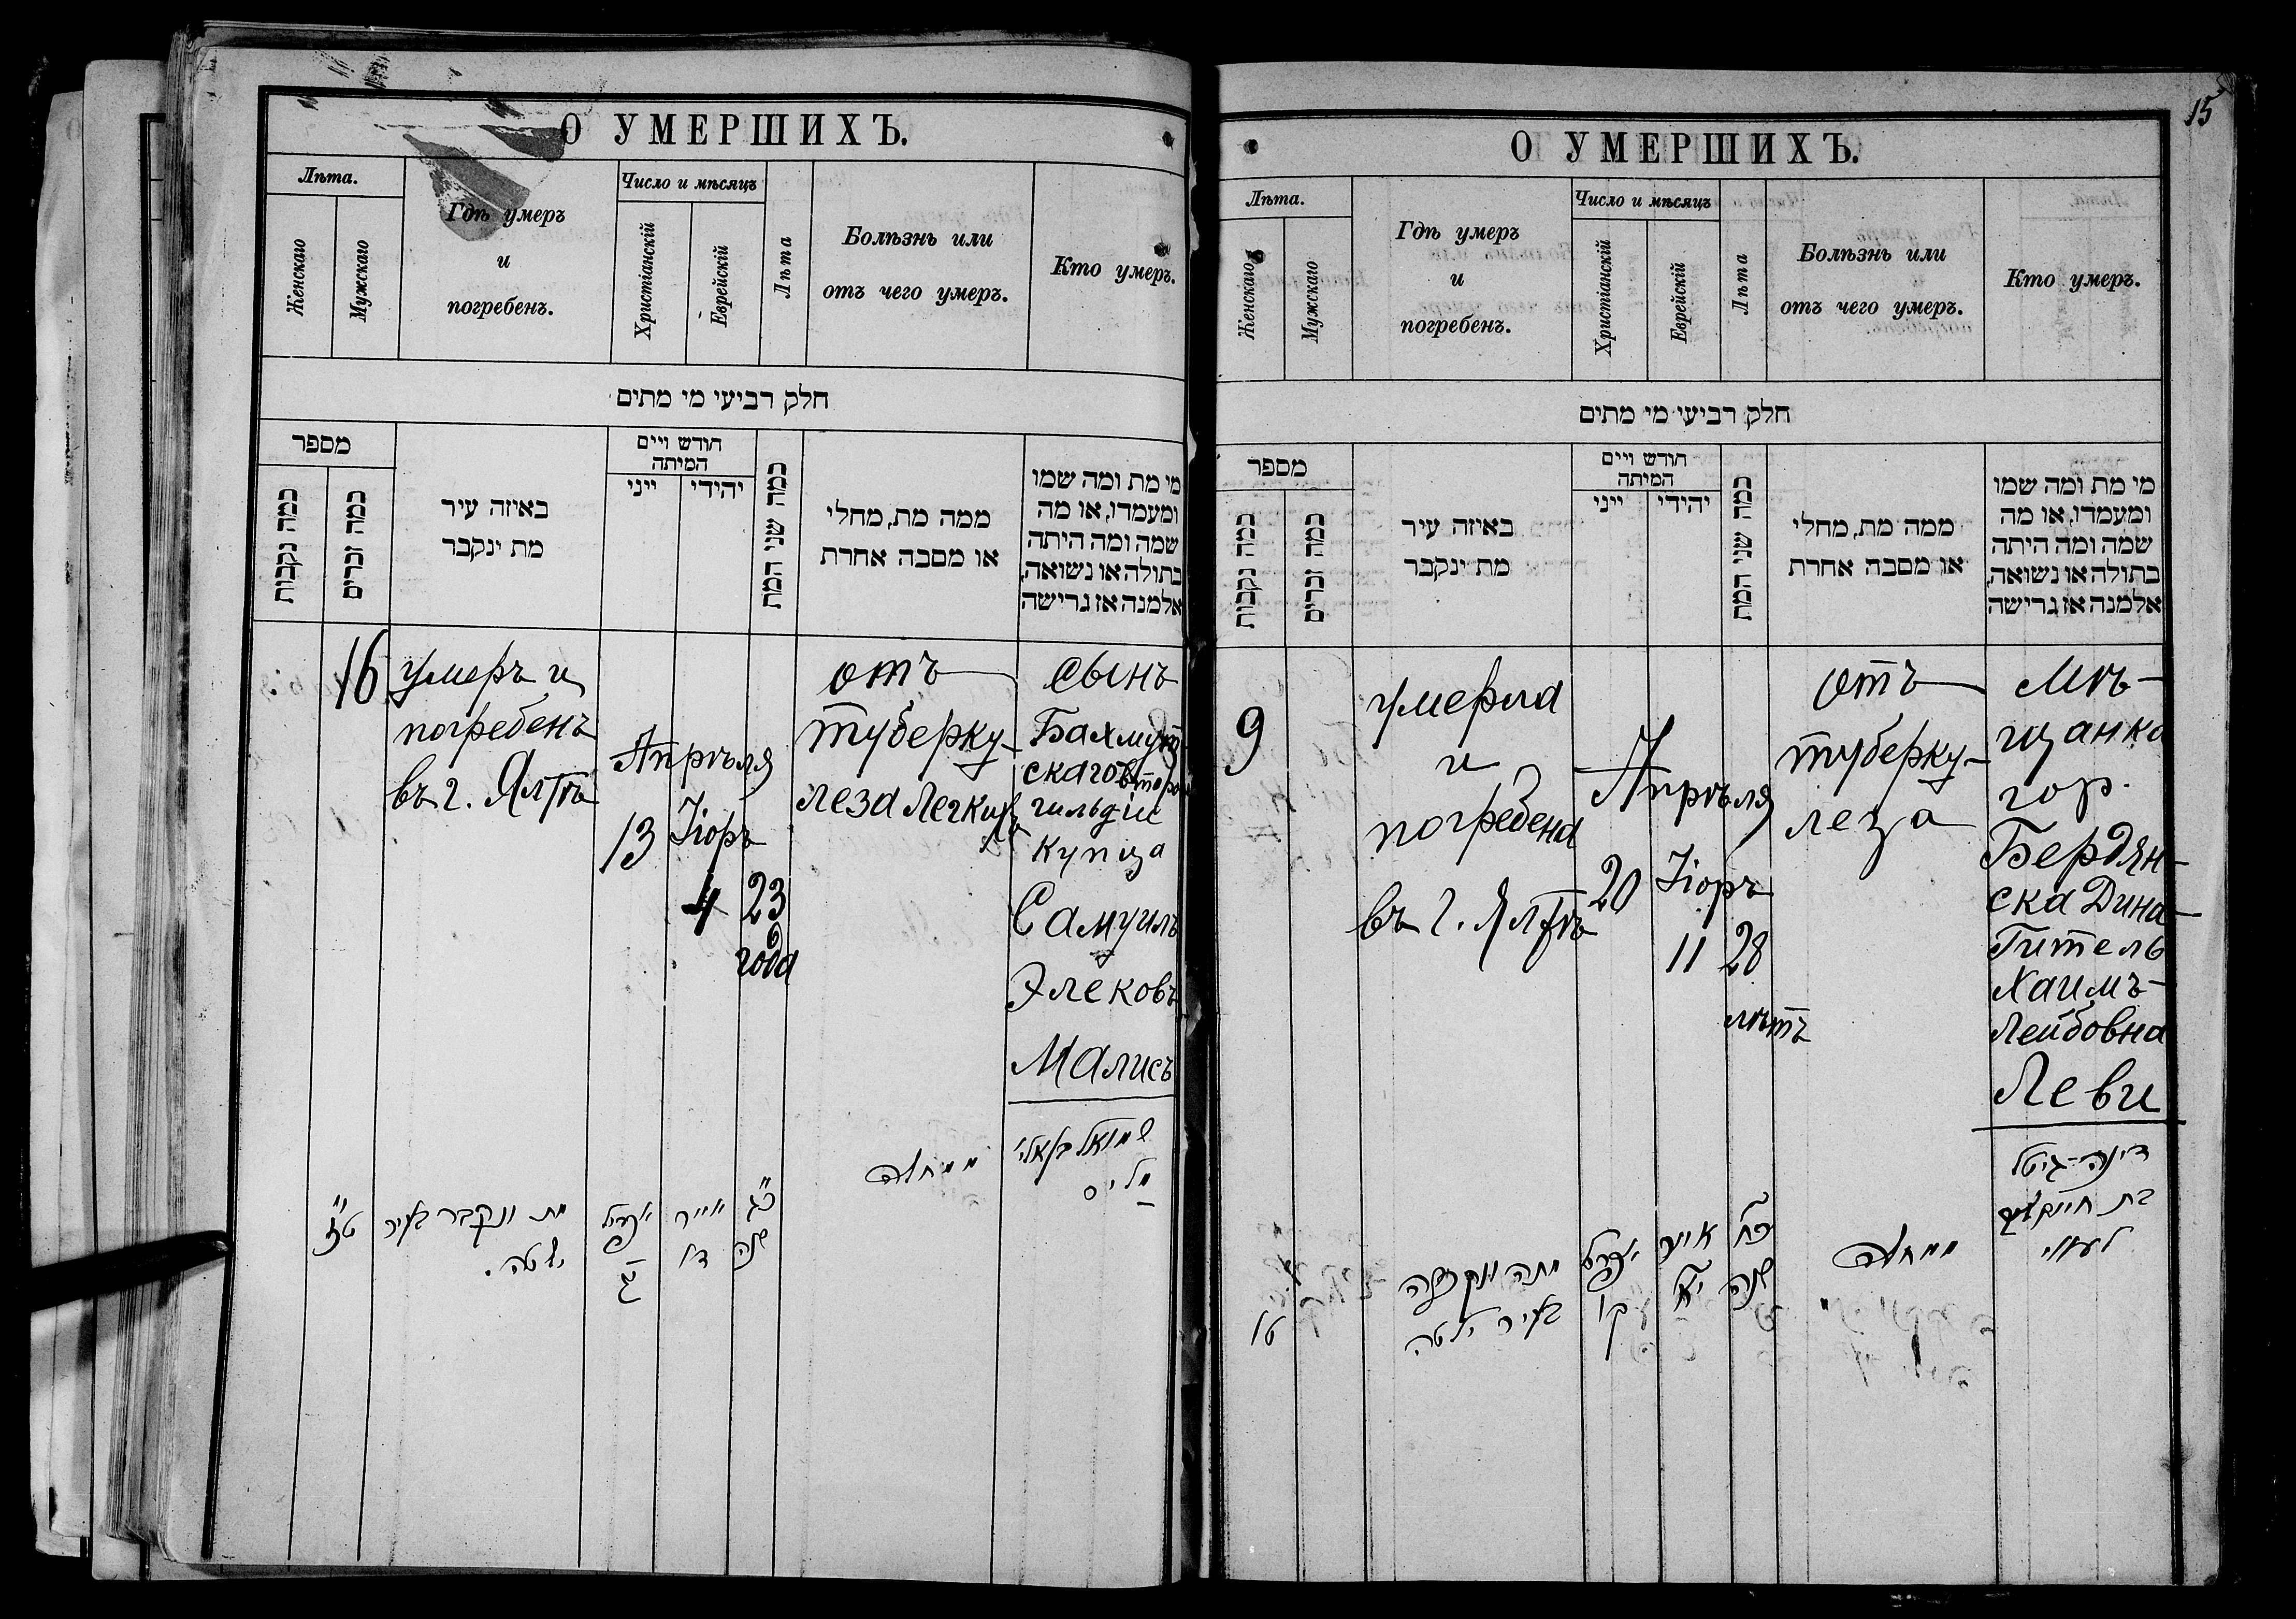 О УМЕРШИХЪ.
Лѣта.
Женскаго
Мужскаго
Гдѣ умеръ
и
погребенъ.
Число и мѣсяцъ
Христіанскій
Еврейскій
Лѣта
Болѣзнь или
отъ чего умеръ.
Кто умеръ.
חלק רביעי מי מתים
מספר
כמה נקבות
כמה זכרים
באיזה עיר
מת ינקבר
חודש ויים
המיתה
ייני
יהידי
כמה שני המת
ממה מת, מחלי
או מסבה אחרת
מי מת ומה שמו
ומעמדו, או מה
שמה ומה היתה
בתולה או נשואה,
אלמנה אז גרישה
16
умеръ и
погребенъ
въ г. Ялтѣ
Апрѣля
13
Іюръ
4
23
года
отъ
туберку-
леза легкихъ
сынъ
Бахмут-
скаго второй
гильдіи
купца
Самуилъ
Элековъ
Малисъ
ט״ז
מת ונקבר בעיר
יאלטה.
אפריל
יג
אייר
ד׳
כ״ג
שנה
ממחלה
שמואל
מליס
15
О УМЕРШИХЪ.
Лѣта.
Женскаго
Мужскаго
Гдѣ умеръ
и
погребенъ.
Число и мѣсяцъ
Христіанскій
Еврейскій
Лѣта
Болѣзнь или
отъ чего умеръ.
Кто умеръ.
חלק רביעי מי מתים
מספר
כמה נקבות
כמה זכרים
באיזה עיר
מת ינקבר
חודש ויים
המיתה
ייני
יהידי
כמה שני המת
ממה מת, מחלי
או מסבה אחרת
מי מת ומה שמו
ומעמדו, או מה
שמה ומה היתה
בתולה או נשואה,
אלמנה אז גרישה
9
умерла
и
погребена
въ г. Ялтѣ
Апрѣля
20
Іюръ
11
28
лѣтъ
отъ
туберку-
леза
Мѣ-
щанка
гор.
Бердян-
ска Дина-
Гитель
Хаимъ-
Лейбовна
Леви
ט׳
מתה ונקברה
בעיר ילטה
אפריל
אייר
י״א
כ״ח
שנה
ממחלה
דינה-גיטל
בת